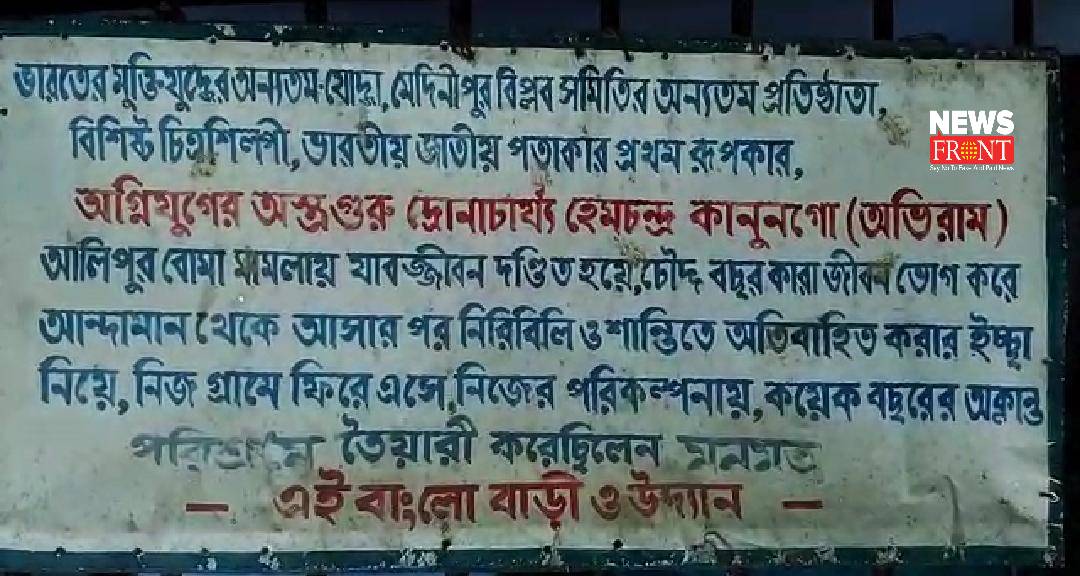 ভারতের মুক্তিযুদ্ধের অন্যতম যোদ্ধা, মেদিনীপুর বিপ্লব সমিতির অন্যতম প্রতিষ্ঠাতা,
বিশিষ্ট চিত্রশিলপী, ভারতীয় জাতীয় পতাকার প্রথম রূপকার,
অগ্নিযুগের অস্ত্রগুরু দ্রোনাচার্য্য হেমচন্দ্র কানুনগো (অভিরাম)
আলিপুর বোমা মামলায় যাবজ্জীবন দণ্ডিত হয়ে, চৌদ্দ বছর কারা জীবন ভোগ করে
আন্দামান থেকে আসার পর নিরিবিলি ও শান্তিতে অতিবাহিত করার ইচ্ছা
নিয়ে, নিজ গ্রামে ফিরে এসে, নিজের পরিকল্পনায়, কয়েক বছরের অক্লান্ত
পরিশ্রমে তৈয়ারী করেছিলেন মনমত
— এই বাংলো বাড়ী ও উদ্যান —
NEWS
FRONT
Say No To Fake And Paid News